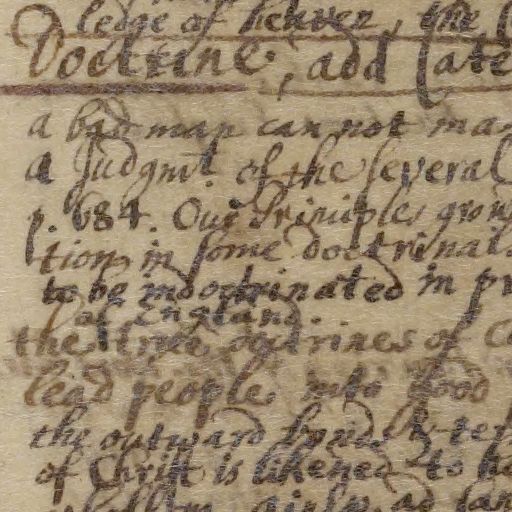 ledge of heaven, the
Doctrine, add Late
a bad man can not man
a Judgmt. of the several
p. 684. Our Principles grow
tion in some doctrinal
to be indoctrinated in pr
of England.
the true doctrines of C
lead people into good
the outward
of Christ is likened to be